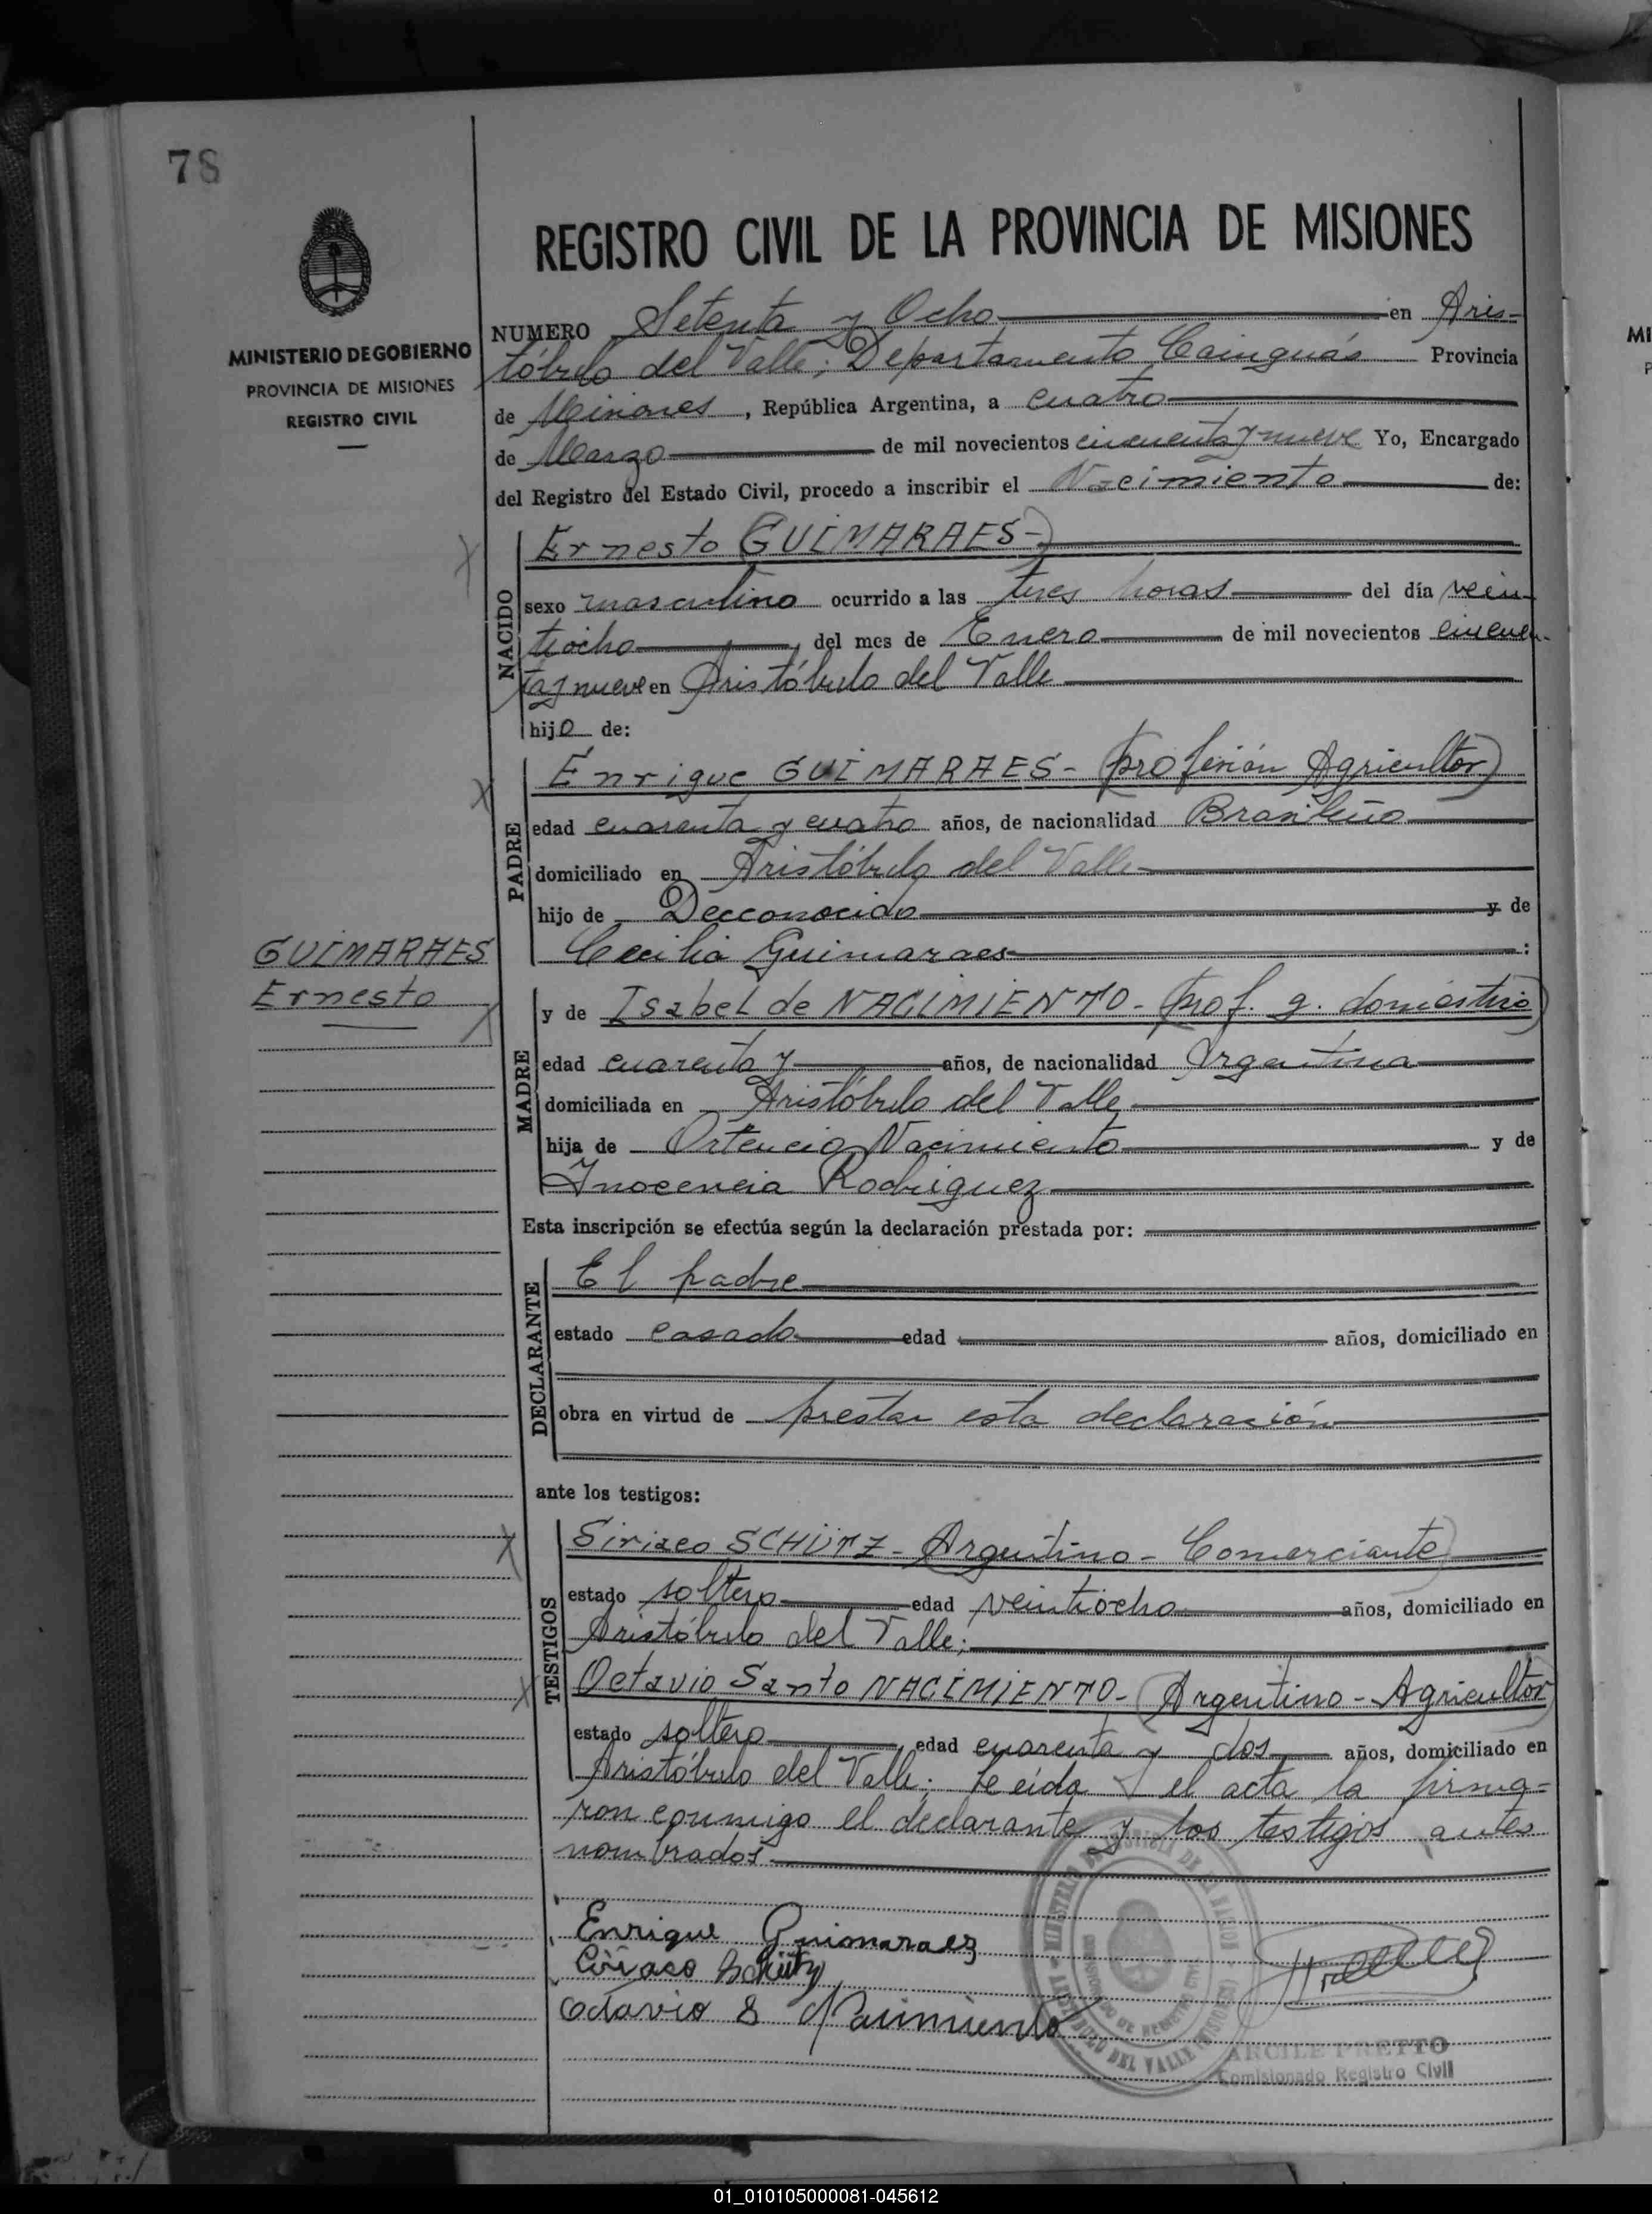 78
MINISTERIO DE GOBIERNO
PROVINCIA DE MISIONES
REGISTRO CIVIL
REGISTRO CIVIL DE LA PROVINCIA DE MISIONES
NUMERO Setenta y Ocho en Aris-
tóbulo del Valle; Departamento Cainguás Provincia
de Misiones, República Argentina, a cuatro
de Marzo de mil novecientos cincuenta y nueve Yo, Encargado
del Registro del Estado Civil, procedo a inscribir el Nacimiento de:
NACIDO
Ernesto (GUIMARAES-)
sexo masculino ocurrido a las tres horas del día vein-
tiocho, del mes de Enero de mil novecientos cincuen-
ta y nueve en Aristóbulo del Valle
hijo de:
PADRE
Enrique GUIMARAES- (profesión Agricultor)
edad cuarenta y cuatro años, de nacionalidad Brasileño
domiciliado en Aristóbulo del Valle
hijo de Decconocido y de
Cecilia Guimaraes:
GUIMARAES
Ernesto
MADRE
y de Isabel de NACIMIENTO- (prof. q. doméstico)
edad cuarenta y años, de nacionalidad Argentina
domiciliada en Aristóbulo del Valle
hija de Ortencio Nacimiento y de
Inocencia Rodriguez
Esta inscripción se efectúa según la declaración prestada por:
DECLARANTE
El padre
estado casado edad años, domiciliado en
obra en virtud de prestar esta declaración
ante los testigos:
TESTIGOS
Siriaco SCHÜTZ- (Argentino- Comerciante)
estado soltero edad veintiocho años, domiciliado en
Aristóbulo del Valle;
Octavio Santo NACIMIENTO- (Argentino- Agricultor)
estado soltero, edad cuarenta y dos años, domiciliado en
Aristóbulo del Valle; Leida el acta la firma-
ron conmigo el declarante y los testigos antes
nombrados
Enrique Guimaraez
Ciriaco Schütz
Octavio S Nacimiento
ARCILE PRETTO
Comisionado Registro Civil
01_010105000081-045612